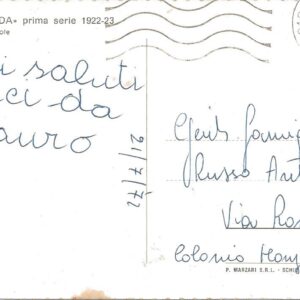 DA» prima serie 1922-23
ole
i saluti
ci da
auro
21/7/72
Gent. Famig
Russo Ant
Via Ro
Colonio Mon
P. MARZARI S.R.L. - SCHI